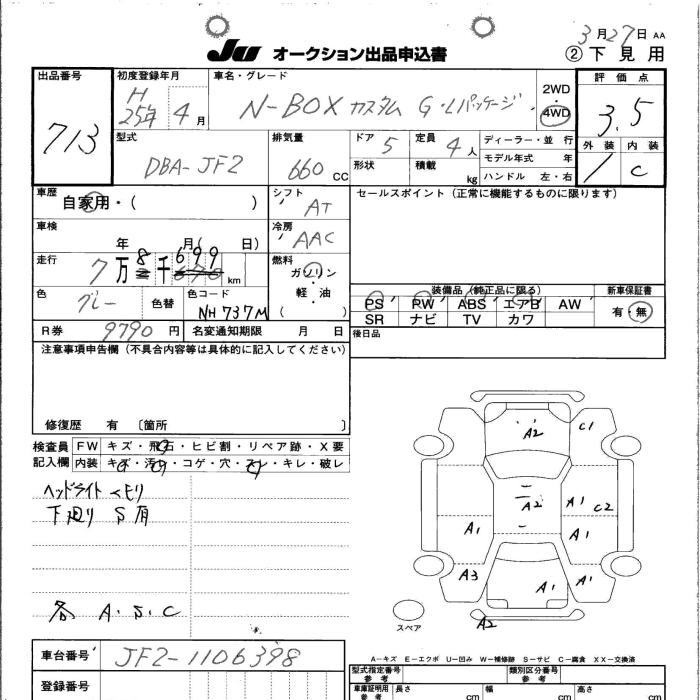 3月27日 AA
JU オークション出品申込書 ②下見用
出品番号 713
初度登録年月 H 25年 4月
車名・グレード N-BOX カスタム G・Lパッケージ
2WD
4WD
評価点 3.5
外装 内装
C
型式 DBA-JF2
排気量 660 CC
ドア 5
形状
定員 4人
積載 kg
ディーラー・並行
モデル年式 年
ハンドル 左・右
車歴 自家用・( )
シフト AT
セールスポイント (正常に機能するものに限ります)
車検 年 月( 日)
冷房 AAC
走行 7万8千699 km
燃料 ガソリン・軽油
( )
色 グレー 色替
色コード NH737M
装備品 (純正品に限る)
PS PW ABS エアB AW
SR ナビ TV カワ
新車保証書 有・無
R券 9790円
名変通知期限 月 日
後日品
注意事項申告欄 (不具合内容等は具体的に記入してください)
修復歴 有 〔箇所 〕
検査員記入欄
FW キズ・飛石・ヒビ割・リペア跡・X要
内装 キズ・汚れ・コゲ・穴・スレ・キレ・破レ
ヘッドライト クモリ
下廻り S有
各 A.S.C
A2
C1
A2
A1
C2
A1
A1
A3
A1
A1
A2
スペア
A-キズ E-エクボ U-凹み W-補修跡 S-サビ C-腐食 XX-交換済
車台番号 JF2-1106398
登録番号
型式指定番号 参考
類別区分番号 参考
車庫証明用 参考 長さ cm 幅 cm 高さ cm